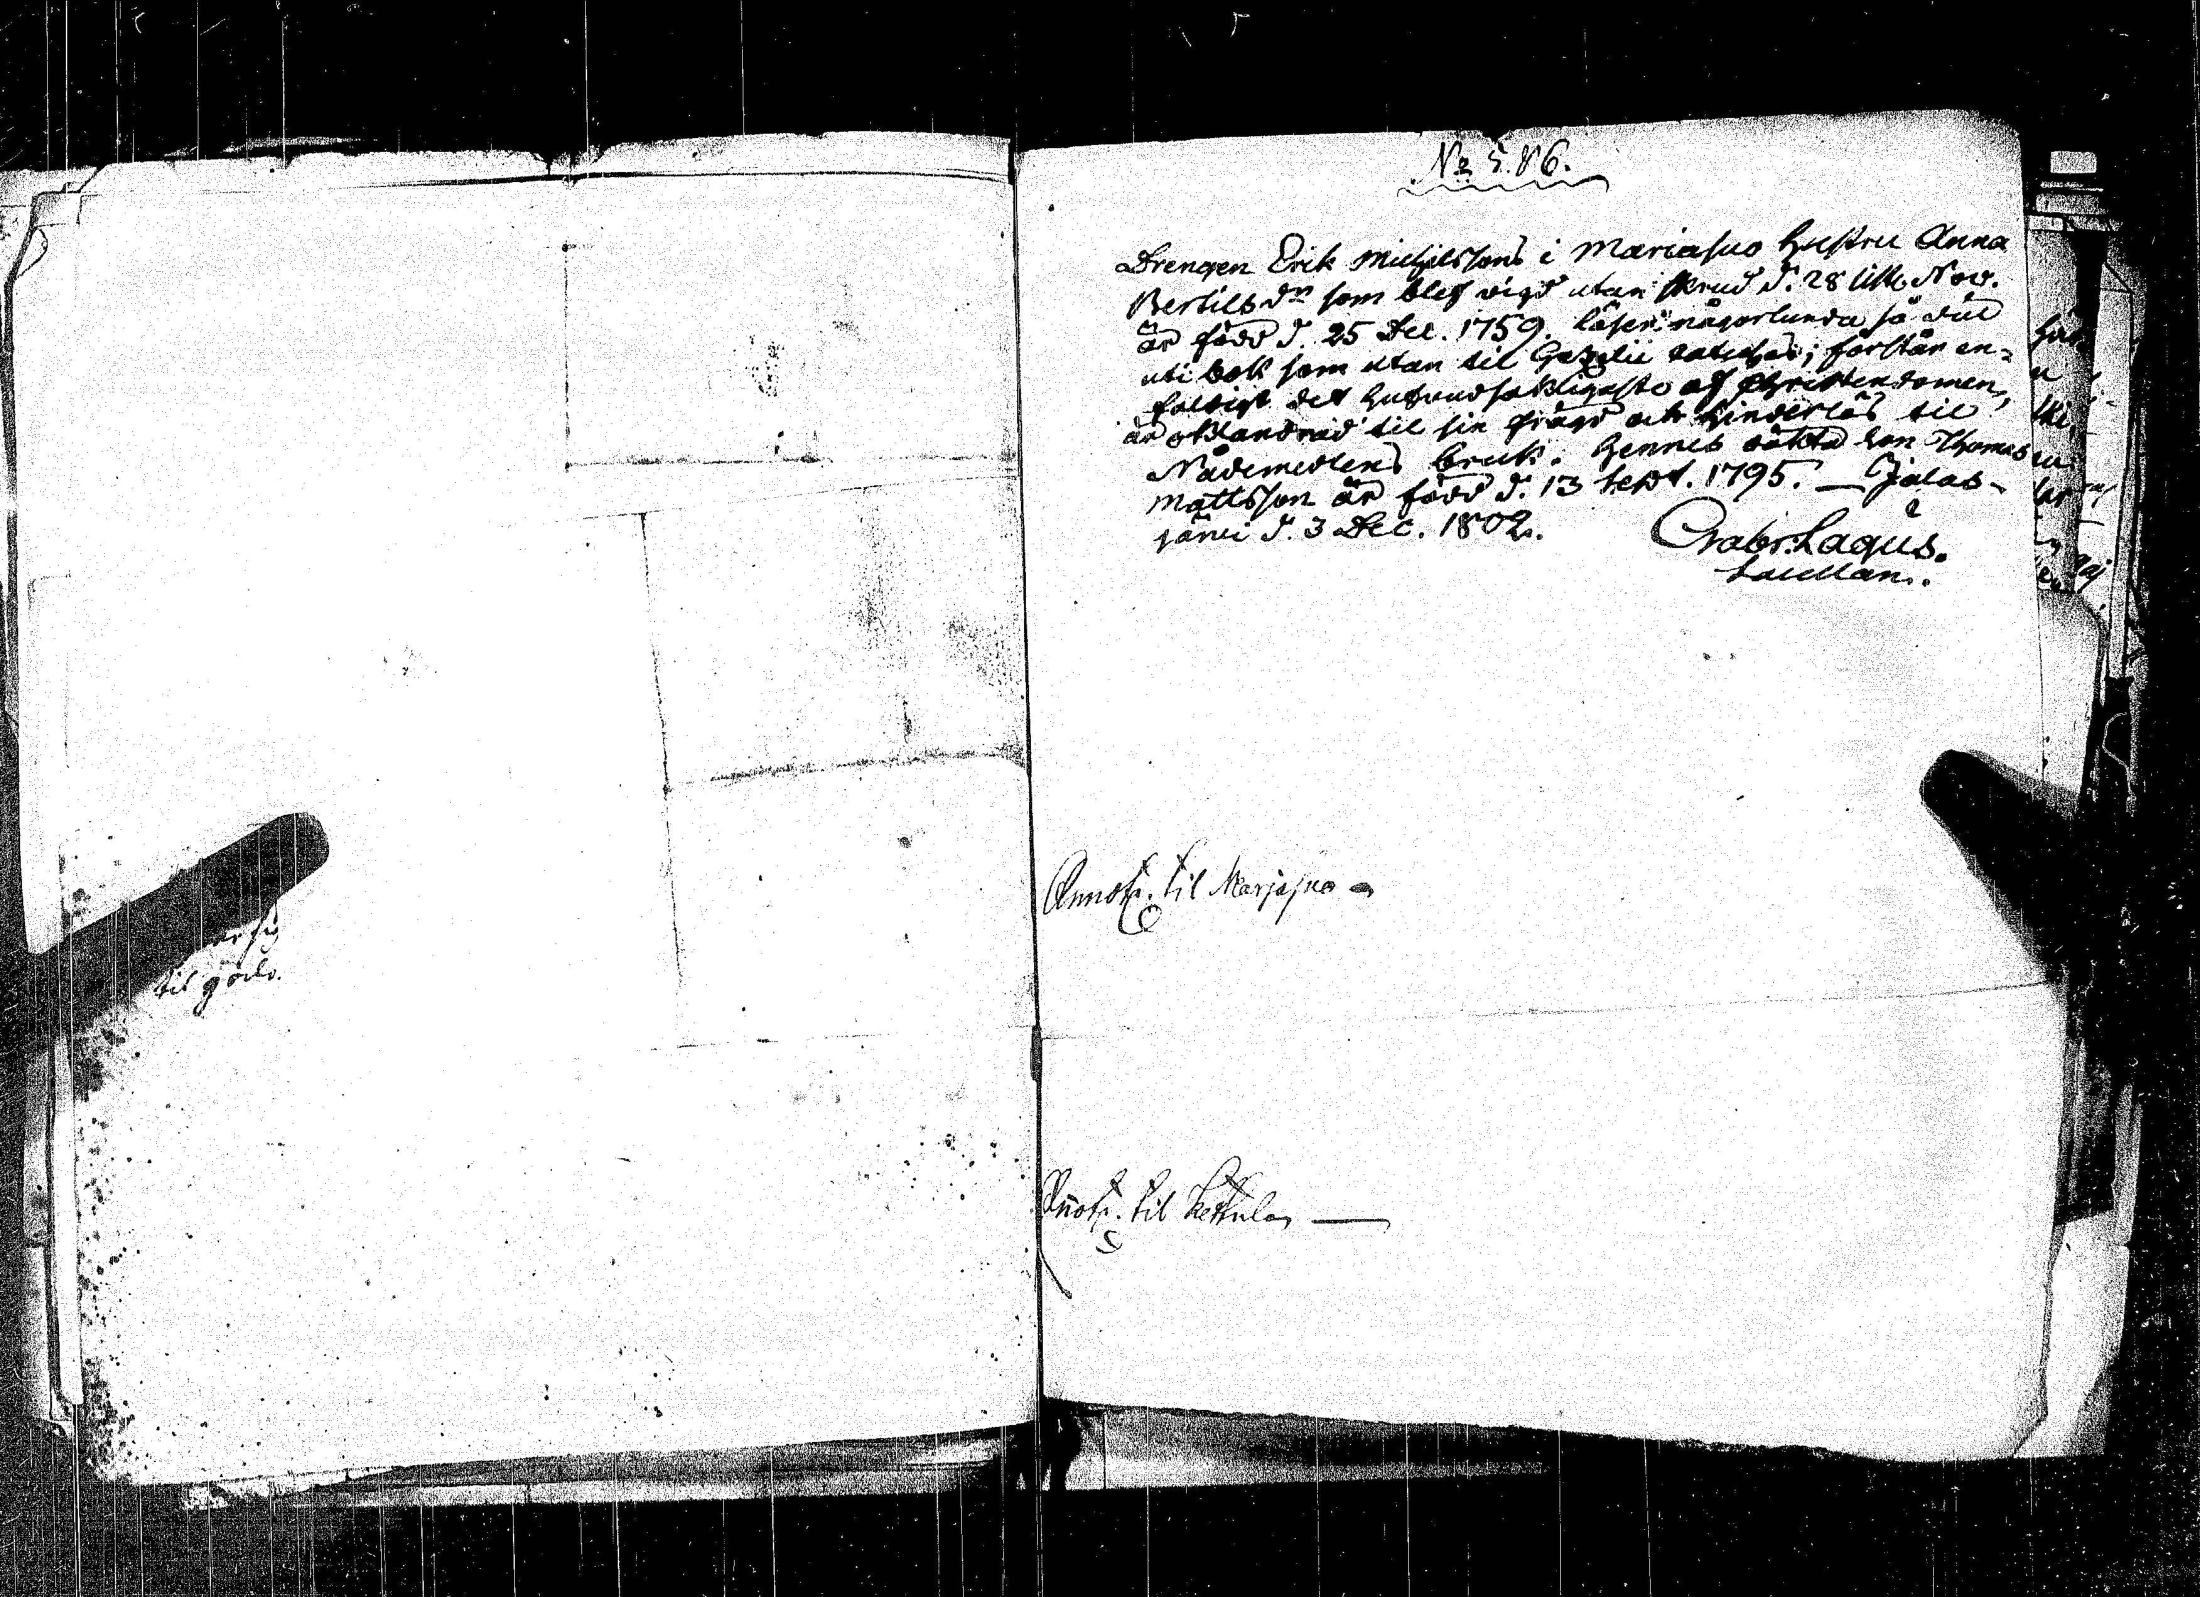 No 586.
Drengen Erik Michelssons i Mariasuo Hustru Anna
Bertils dr som blef vigd utan skrud d. 28 sistl. Nov.
är född d. 25 Dec. 1759. läser någorlunda så väl
uti bok som utan til Gezelii cateches; förstår en-
faldigt det hufvudsakligaste af Christendomen,
är oklandrad til sin frägd och hinderlös til
Nådemedlens bruk. Hennes oäkta son Thomas
Mattsson är född d. 13 Sept. 1795. _ Jalas-
järvi d. 3 Dec. 1802.
Gabr. Lagus.
Capellan.
Annot. til Marjasuo
Annot. til Kettula
til godo.